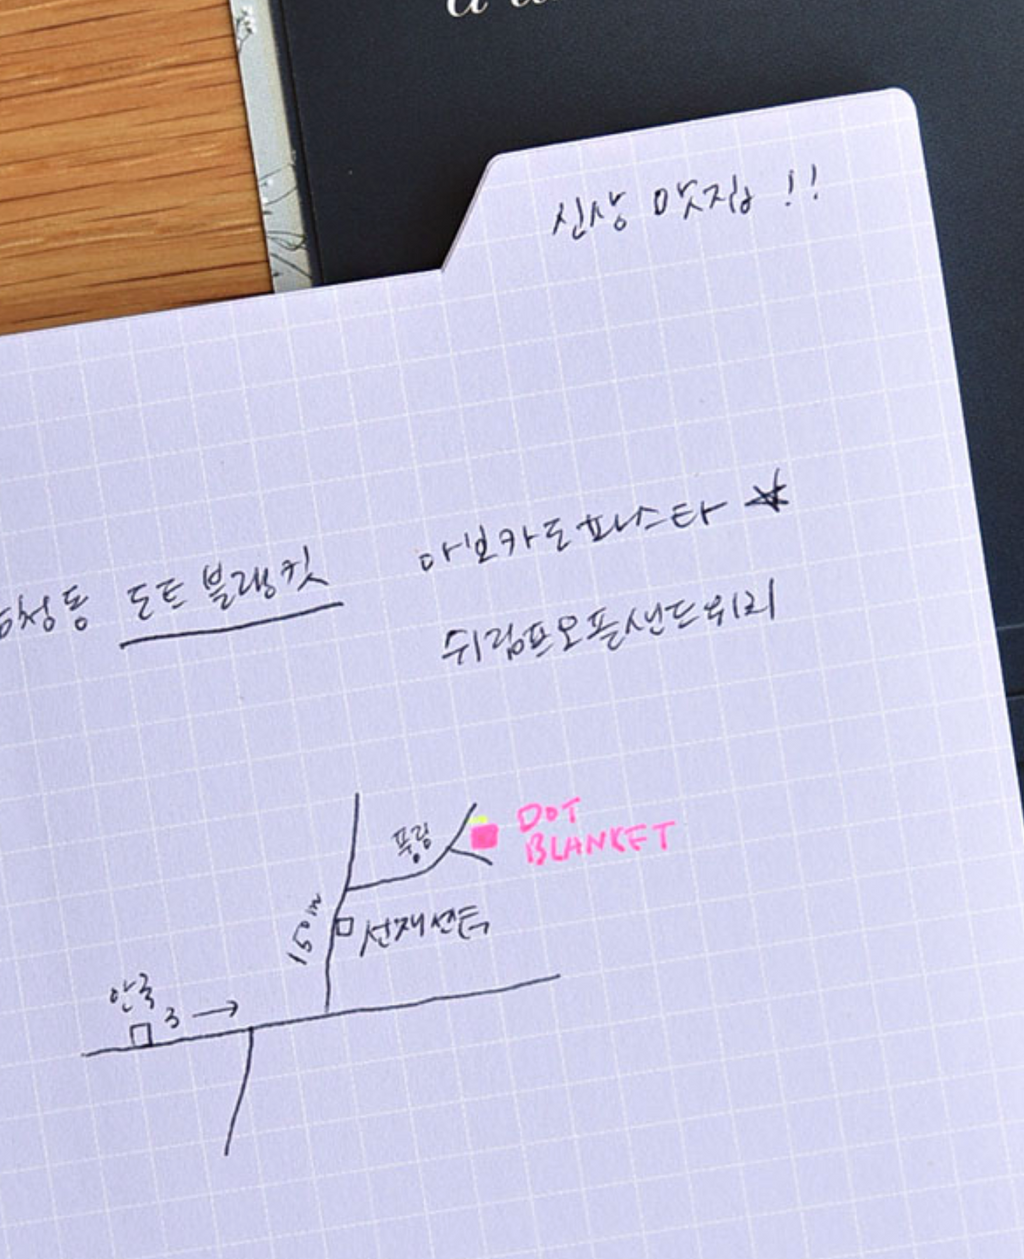 신상 맛집 !!
삼청동 도트 블랭킷
아보카도파스타
쉬림프오픈샌드위치
풍경
DOT
BLANKET
150m
선재센터
안국
3 →